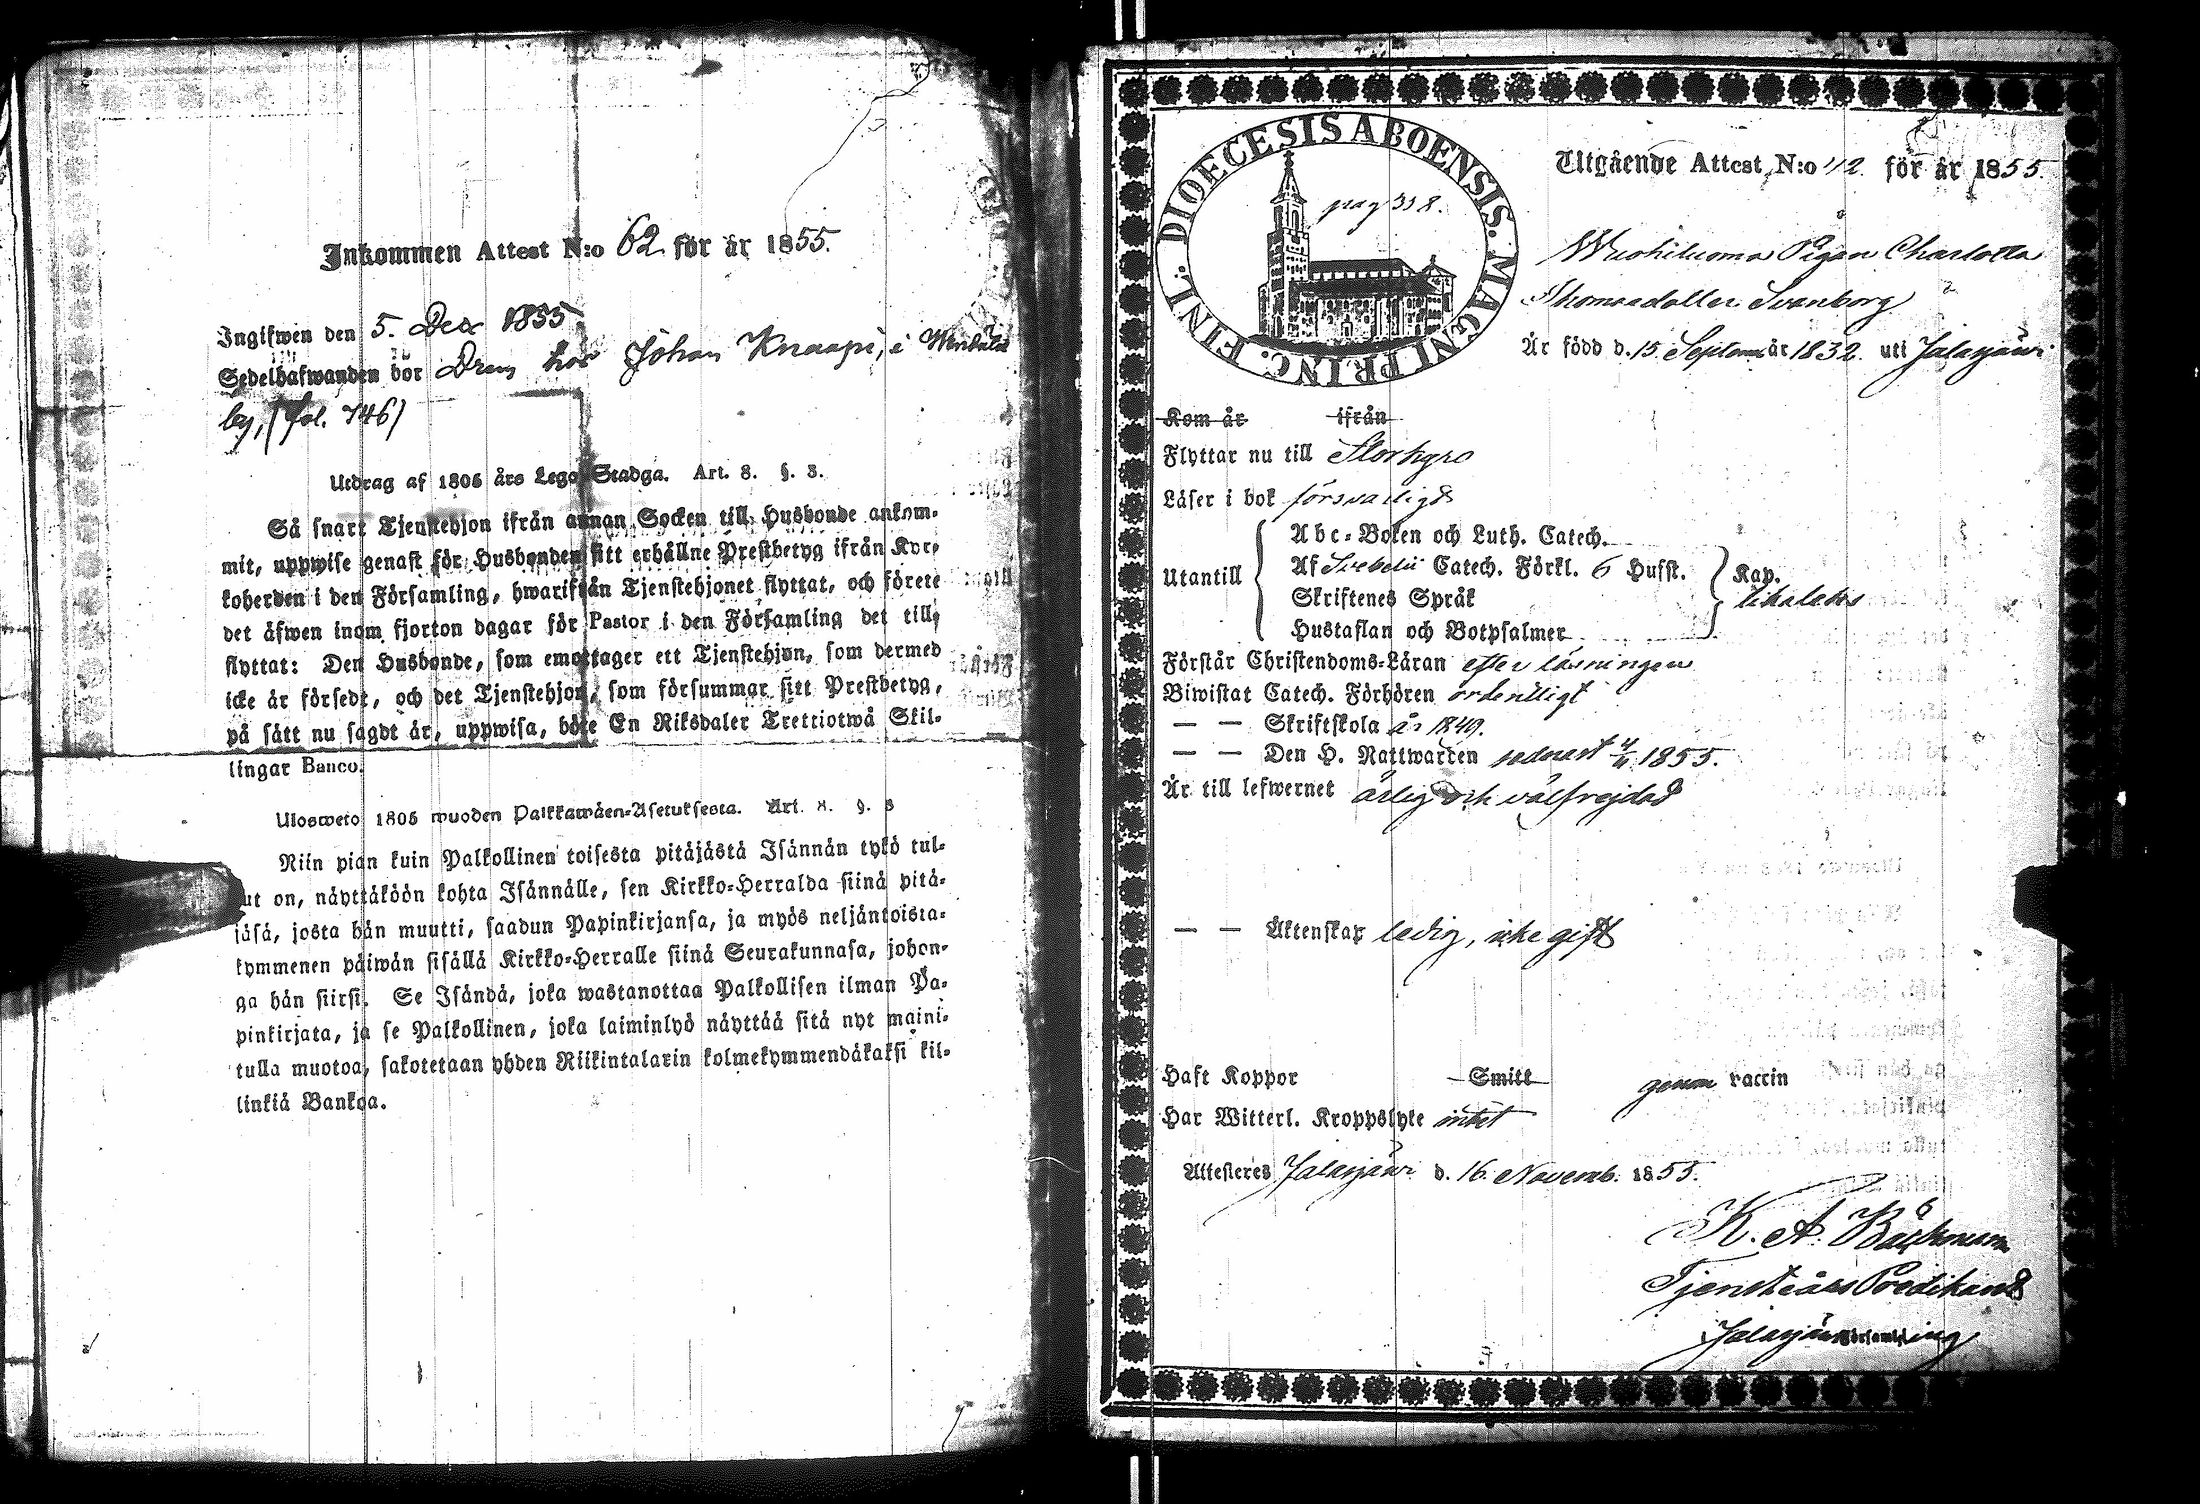 Inkommen Attest N:o 62 för år 1855.
Ingifwen den 5. Dec 1855
Sedelhafwanden bör Dräng hos Johan Knaapi, i
by, (fol. 746)
Utdrag af 1805 års Lego Stadga. Art. 8. §. 3.
Så snart Tjenstehjon ifrån annan Socken till Husbonde ankom-
mit, uppwise genast för Husbonden sitt erhållne Prestbetyg ifrån Kyr-
koherden i den Församling, hwarifrån Tjenstehjonet flyttat, och förete
det äfwen inom fjorton dagar för Pastor i den Församling det till-
flyttat: Den Husbonde, som emottager ett Tjenstehjon, som dermed
icke är försedt, och det Tjenstehjon, som försummar sitt Prestbetyg,
på sätt nu sagdt är, uppwisa, böte En Riksdaler Trettiotwå Skil-
lingar Banco.
Ulosweto 1805 wuoden Palkkawäen-Asetuksesta. Art. 8. §. 3
Niin pian kuin Palkollinen toisesta pitäjästä Isännän tykö tul-
ut on, näyttäköön kohta Isännälle, sen Kirkko-Herralda siinä pitä-
jäsä, josta hän muutti, saadun Papinkirjansa, ja myös neljäntoista-
kymmenen päiwän sisällä Kirkko-Herralle siinä Seurakunnasa, johon-
ga hän siirsi. Se Isändä, joka wastanottaa Palkollisen ilman Pa-
pinkirjata, ja se Palkollinen, joka laiminlyö näyttää sitä nyt maini-
tulla muotoa, sakotetaan yhden Riikintalarin kolmekymmendäkaksi kil-
linkiä Bankoa.
DIOECESIS ABOENSIS. MAGNI PRINC. FINL.
pag 338.
Utgående Attest N:o 42. för år 1855.
Wuohiluoma Pigan Charlotta
Thomasdotter Svanborg
Är född d. 15 Septem år 1832. uti Jalasjärvi
Kom år ifrån
Flyttar nu till Storkyro
Läser i bok försvarligt
Abc-Boken och Luth. Catech.
Utantill
Af Svebelii Catech. Förkl. 6 Hufst.
Kap.
Skriftenes Språk
likaledes
Hustaflan och Botpsalmer
Förstår Christendoms-Läran efter läsningen
Biwistat Catech. Förhören ordentligt
— — Skriftskola år 1849.
— — Den H. Nattwarden sednast 4/11 1855.
Är till lefwernet ärlig och välfrejdad
— — Äktenskap ledig, icke gift
Haft Koppor Smitt genom vaccin
Har Witterl. Kroppslyte intet
Attesteres Jalasjärvi d. 16. Novemb. 1855.
K. A. Bäckman
Tjensteårs Predikant